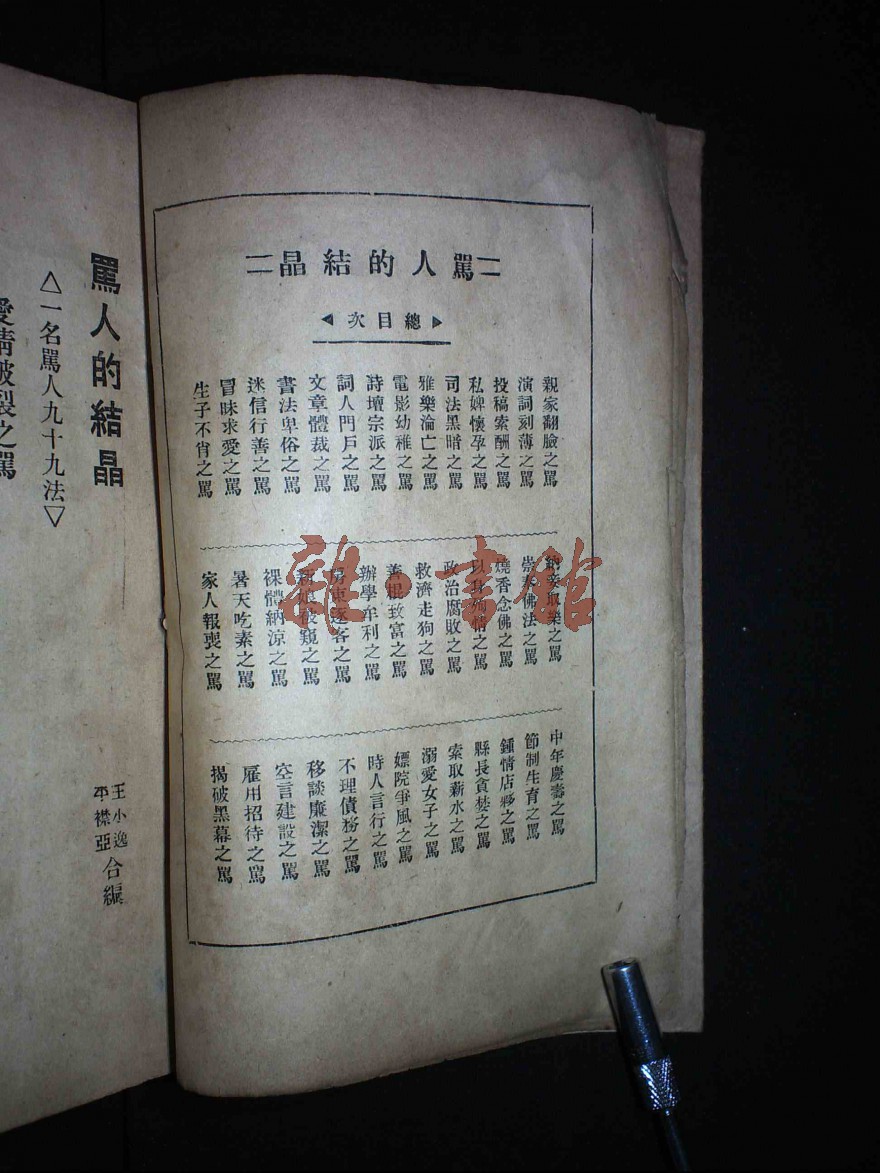 罵人的結晶
總目次
親家翻臉之罵
演詞刻薄之罵
投稿索酬之罵
私婢懷孕之罵
司法黑暗之罵
雅樂淪亡之罵
電影幼稚之罵
詩壇宗派之罵
詞人門戶之罵
文章體裁之罵
書法卑俗之罵
迷信行善之罵
冒昧求愛之罵
生子不肖之罵
納妾取樂之罵
崇奉佛法之罵
燒香念佛之罵
以身殉情之罵
政治腐敗之罵
救濟走狗之罵
善棍致富之罵
辦學牟利之罵
房東逐客之罵
新娘被窺之罵
裸體納涼之罵
暑天吃素之罵
家人報喪之罵
中年慶壽之罵
節制生育之罵
鍾情店夥之罵
縣長貪婪之罵
索取薪水之罵
溺愛女子之罵
嫖院爭風之罵
時人言行之罵
不理債務之罵
移談廉潔之罵
空言建設之罵
雇用招待之罵
揭破黑幕之罵
罵人的結晶
△一名罵人九十九法▽
王小逸
平襟亞
合編
愛情破裂之罵
雜·書館